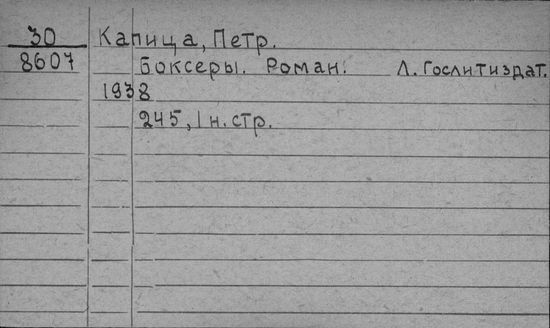 30 Капица, Петр.
8607 Боксеры. Роман. Л. Гослитиздат.
1938
245, 1 н. стр.